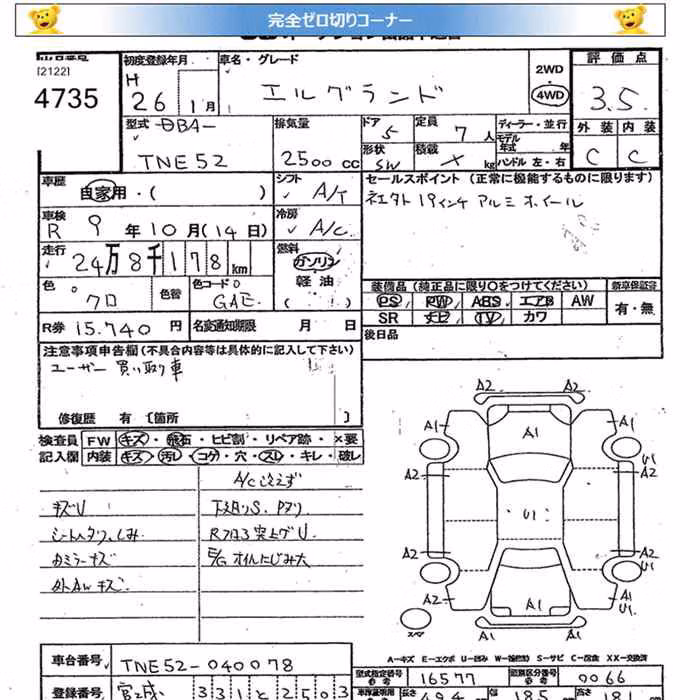 完全ゼロ切りコーナー
[2122]
4735
初度登録年月
H 26年 1月
車名・グレード
エルグランド
2WD
4WD
評価点
3.5
型式 DBA-
TNE52
排気量
2500 cc
ドア 5
形状 SW
定員 7 人
積載 × kg
ディーラー・並行
モデル年式 年
ハンドル 左・右
外装 内装
C C
車歴
自家用・( )
シフト A/T
セールスポイント (正常に機能するものに限ります)
社外19インチ アルミホイール
車検
R 9 年 10 月 (14 日)
冷房 A/C
走行
24万8千178 km
燃料
ガソリン
軽油
( )
色 クロ
色替
色コードO
GAE
装備品 (純正品に限り○をつけてください)
新車保証書
PS PW ABS エアB AW
有・無
SR ナビ TV カワ
R券 15.740 円
名変通知期限 月 日
後日品
注意事項申告欄 (不具合内容等は具体的に記入して下さい)
ユーザー買い取り車
修復歴 有 〔箇所 〕
検査員記入欄
FW キズ・飛石・ヒビ割・リペア跡・×要
内装 キズ・汚レ・コゲ・穴・スレ・キレ・破レ
A/C冷えず
キズU
下廻りS、Pヌリ
シートスレ、しみ
Rフロア突上ゲU
カミラーキズ
E/G オイルにじみ大
外AWキズ
A2 A2
A1 A1 A1
U1
A2 A2
U1
A2 A2
U1
A2 A2
A1 A1
U1
A2 A1
スペア
A-キズ E-エクボ U-凹み W-補修跡 S-サビ C-腐食 XX-交換済
車台番号 TNE52-040078
型式指定番号 16577
類別区分番号 0066
登録番号 宮城 331 と 2503
長さ 494 cm 幅 185 高さ 18